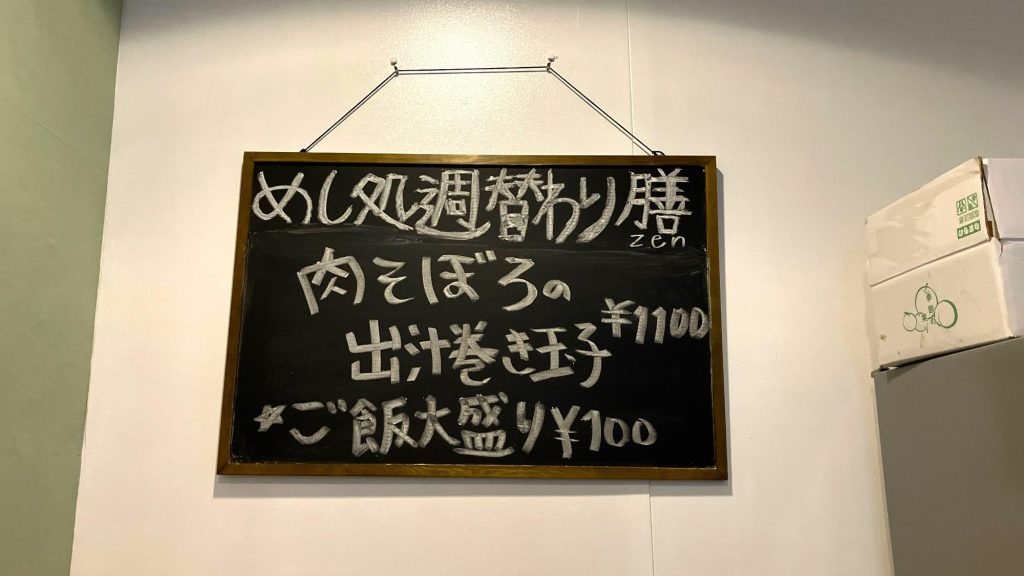 めし処週替わり膳
zen
肉そぼろの
出汁巻き玉子 ¥1100
*ご飯大盛り¥100